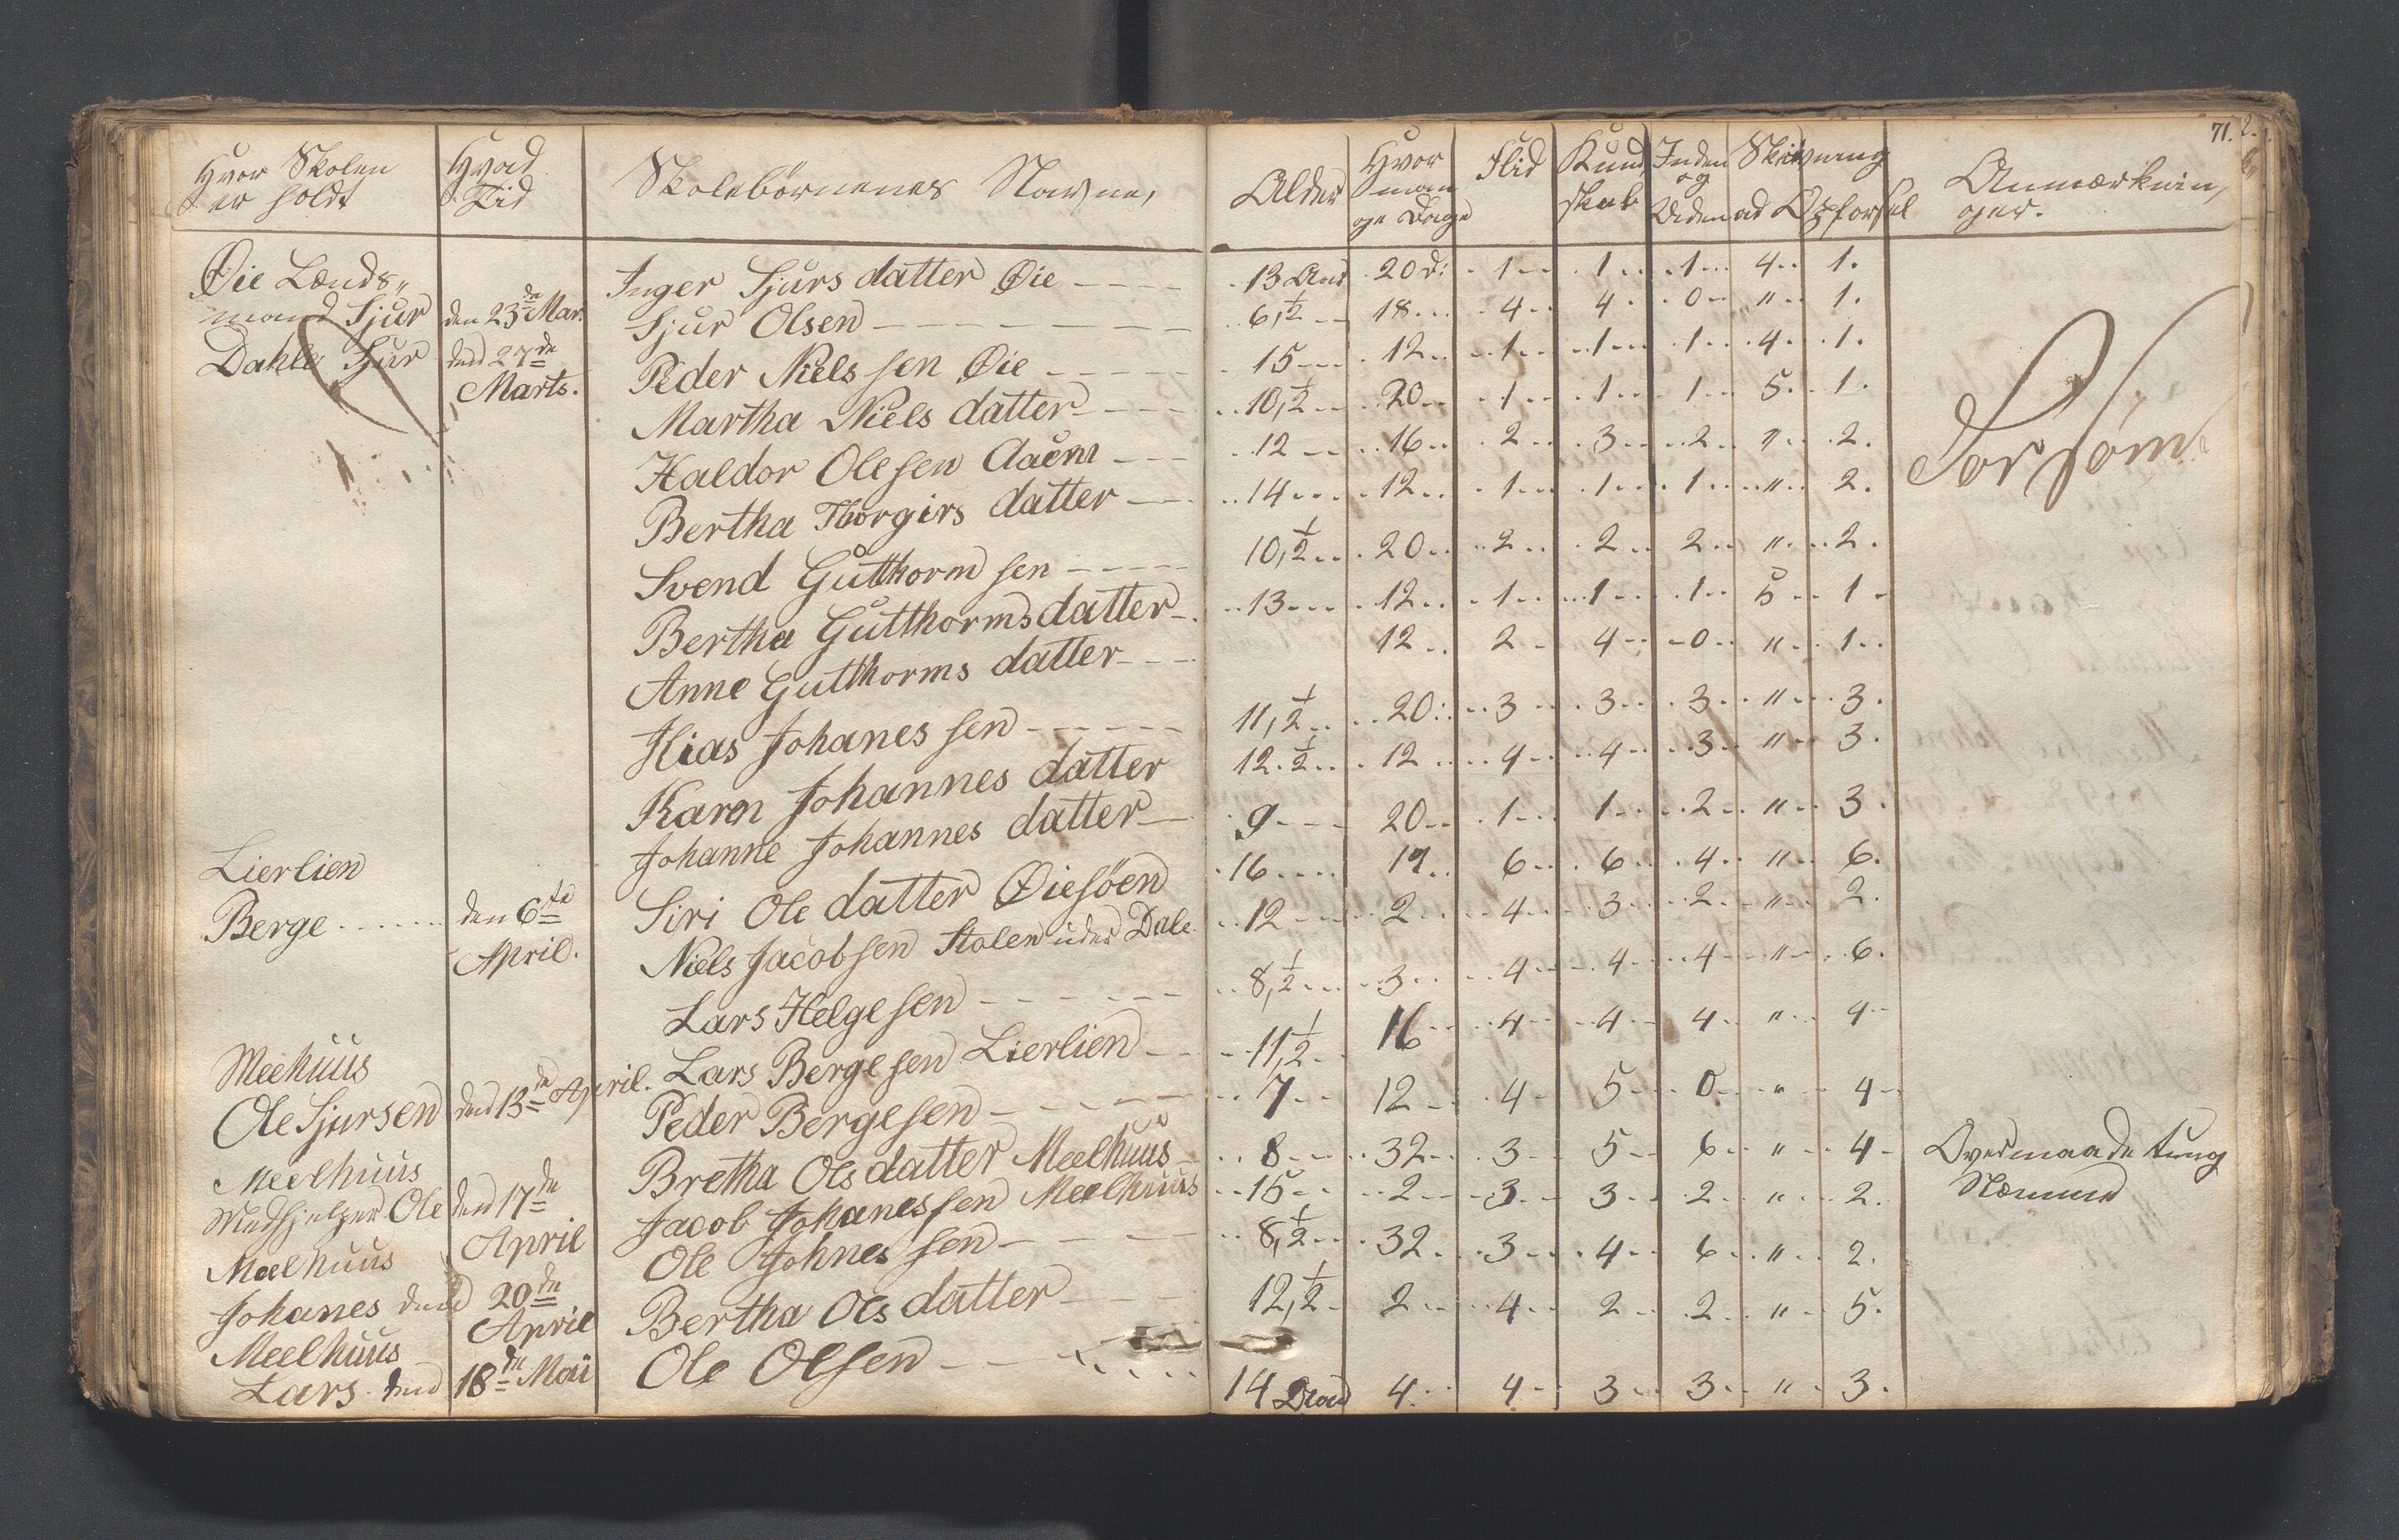 71.
Hvor Skolen
er holdt
Hvad
Tid
Skolebørnenes Navne,
Alder
Hvor
man
ge Dage
Flid
Kund
skab
Inden
og
Udenad
Skrivning
Opførsel
Anmærknin,
ger.
Øie Lænds,,
mand Sjur den 23de Mar.
Dahle Sjur den 27de
Marts.
Inger Sjurs datter Øie ---- 13 Aar 20 d: 1 1 1 4 1.
Sjur Olsen ------- 6,½ 18 4 4 0 " 1.
Peder Niels sen Øie ----- 15 12 1 1 1 4 1.
Martha Niels datter ---- 10,½ 20 1 1 1 5 1.
Haldor Olesen --- 12 16 2 3 2 " 2.
Bertha Thorgirs datter -- 14 12 1 1 1 " 2.
Svend Gutthorm sen ----- 10,½ 20 2 2 2 " 2.
Bertha Gutthorms datter 13 12 1 1 1 5 1
Anne Gutthorms datter --- 12 2 4 0 " 1
Ilias Johanes sen ------ 11,½ 20 3 3 3 " 3.
Karen Johannes datter 12.½ 12 4 4 3 " 3.
Johanne Johannes datter 9 20 1 1 2 " 3.
Lierlien
Berge ...... den 6te
April.
Siri Ole datter Øiesøen 16 6 6 4 " 6.
Niels Jacobsen Stolen Dale 12 2 4 3 2 " 2.
Lars Helgesen ------ 8,½ 3 4 4 4 " 6.
Lars Bergesen Lierlien -- 11,½ 16 4 4 4 " 4
Meehuus
Ole Sjursen den 13de April.
Peder Bergesen ----- 7 12 4 5 0 " 4
Bretha Ols datter Meelhuus 8 32 3 5 6 " 4
Overmaade tung
Næmme
Meelhuus
Medhjelper Ole den 17de
April
Jacob Johanes sen Meelhuus 15 2 3 3 2 " 2.
Ole Johnes sen ---- 8,½ 32 3 4 6 " 2.
Meelhuus
Johanes den 20de
April
Bertha Ols datter ---- 12,½ 2 4 2 2 " 5.
Meelhuus
Lars den 18de Mai
Ole Olsen 14 4 4 3 3 " 3.
Forsøm